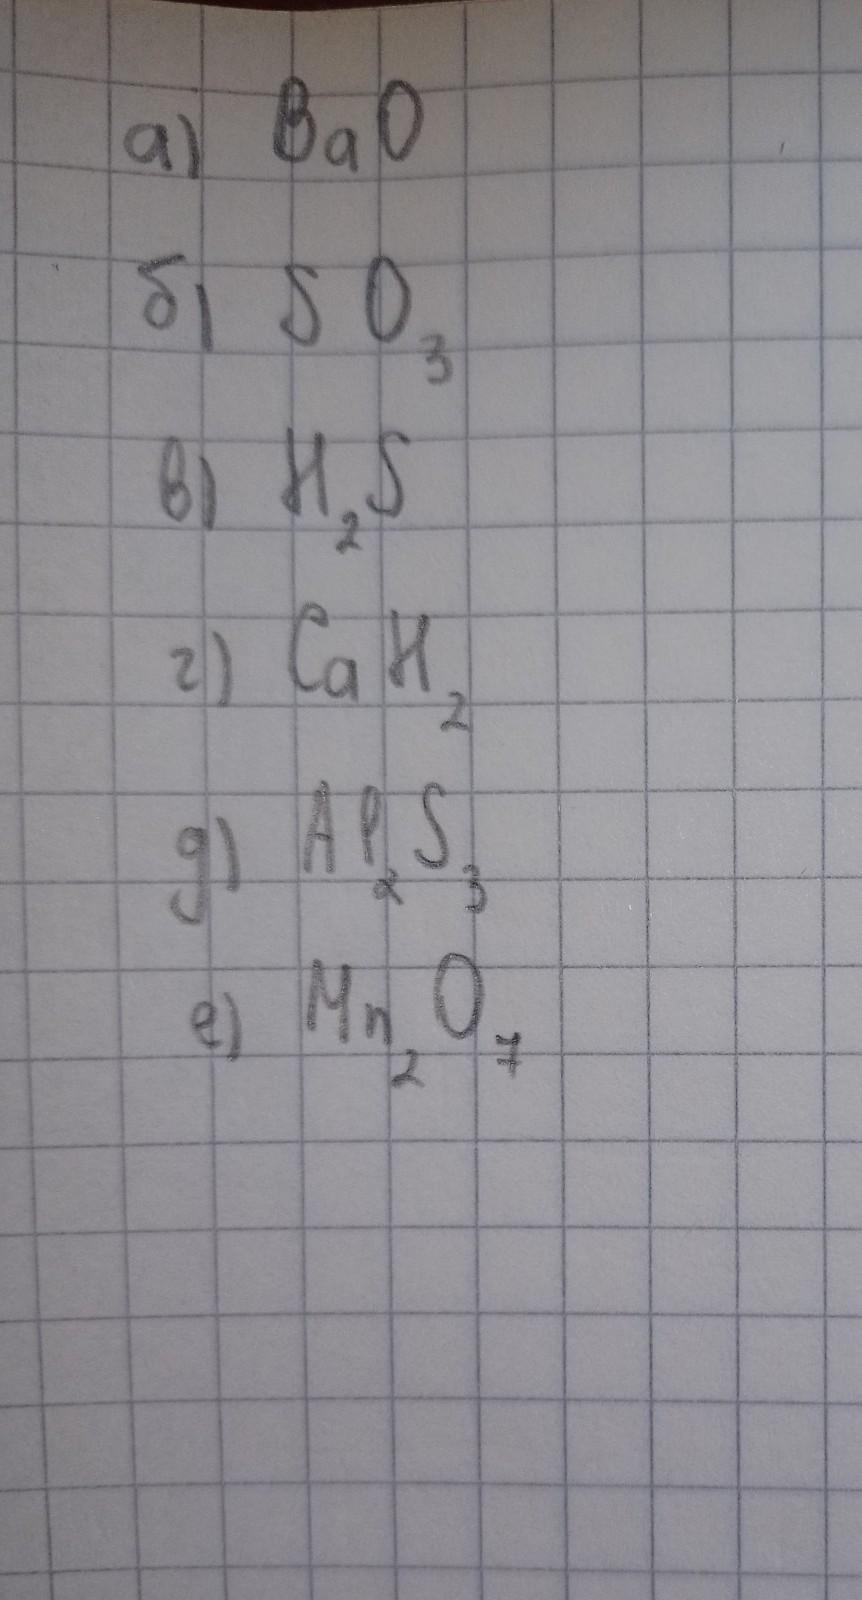 а) BaO
б) SO₃
в) H₂S
г) CaH₂
д) Al₂S₃
е) Mn₂O₇